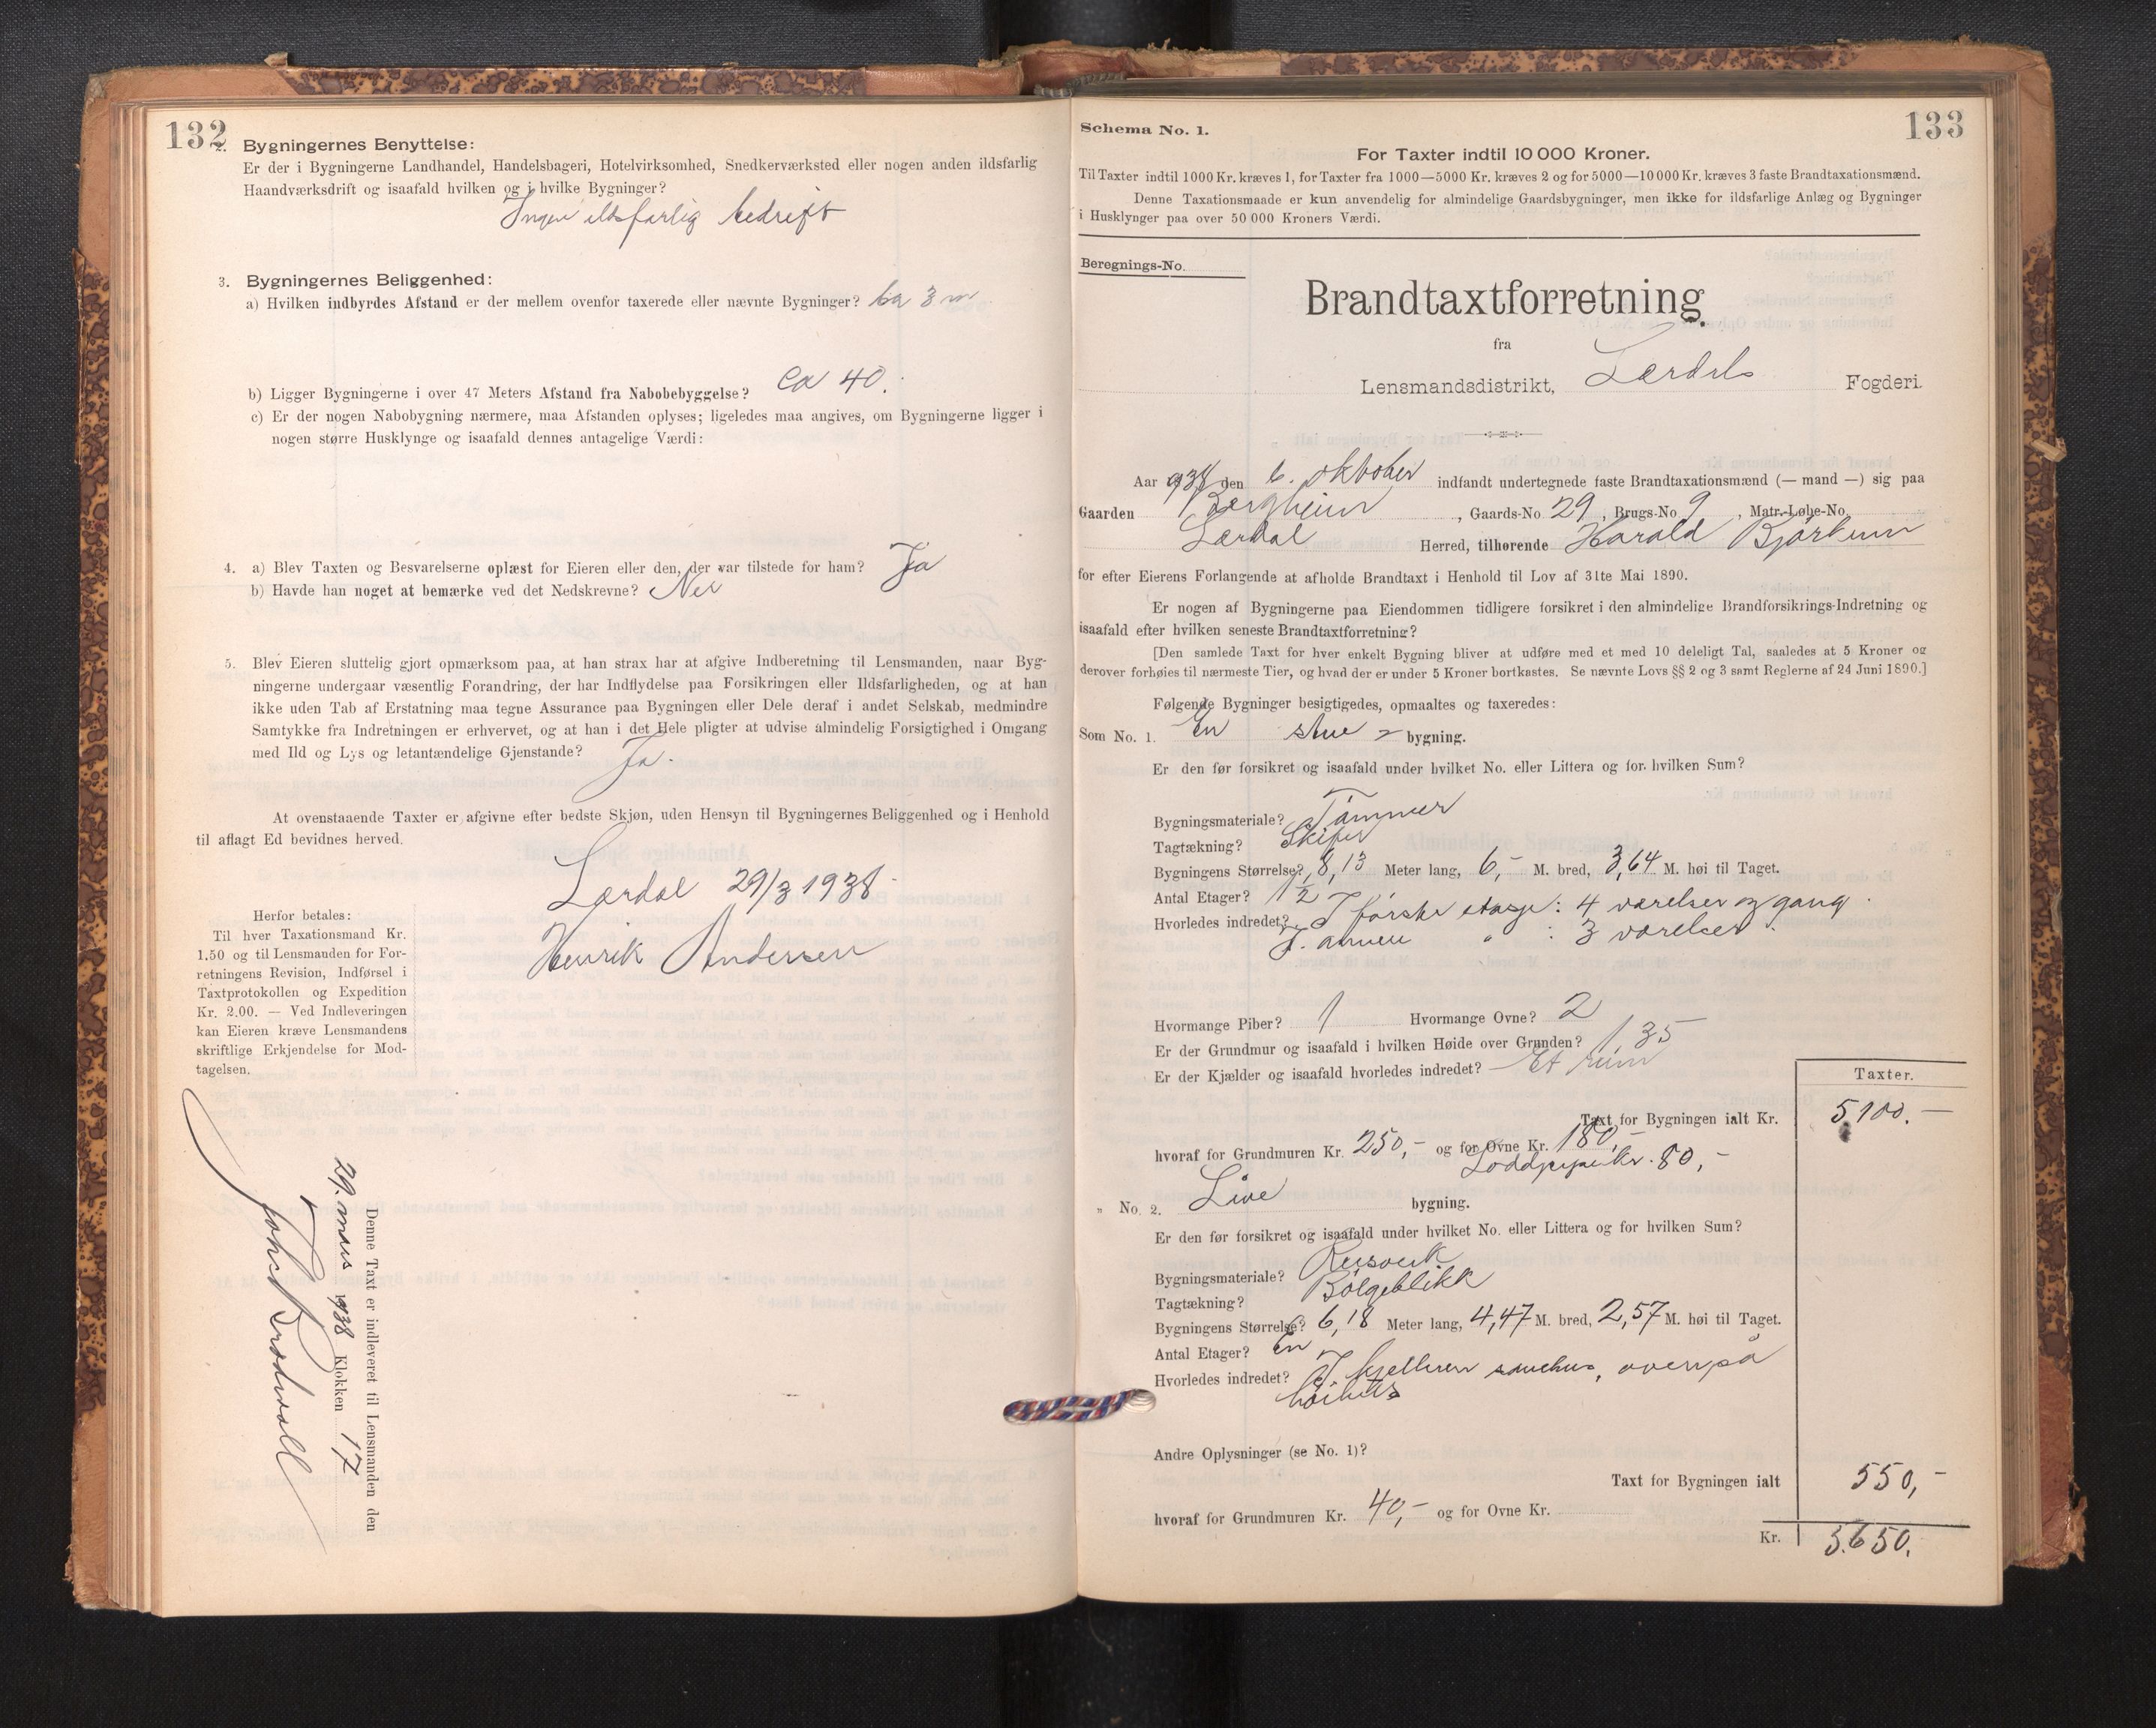 132
2. Bygningernes Benyttelse:
Er der i Bygningerne Landhandel, Handelsbageri, Hotelvirksomhed, Snedkerværksted eller nogen anden ildsfarlig
Haandværksdrift og isaafald hvilken og i hvilke Bygninger?
Ingen ildsfarlig bedrift
3. Bygningernes Beliggenhed:
a) Hvilken indbyrdes Afstand er der mellem ovenfor taxerede eller nævnte Bygninger? ca 3 m
b) Ligger Bygningerne i over 47 Meters Afstand fra Nabobebyggelse? ca 40.
c) Er der nogen Nabobygning nærmere, maa Afstanden oplyses; ligeledes maa angives, om Bygningerne ligger i
nogen større Husklynge og isaafald dennes antagelige Værdi:
4. a) Blev Taxten og Besvarelserne oplæst for Eieren eller den, der var tilstede for ham? Ja
b) Havde han noget at bemærke ved det Nedskrevne? Nei
5. Blev Eieren sluttelig gjort opmærksom paa, at han strax har at afgive Indberetning til Lensmanden, naar Byg-
ningerne undergaar væsentlig Forandring, der har Indflydelse paa Forsikringen eller Ildsfarligheden, og at han
ikke uden Tab af Erstatning maa tegne Assurance paa Bygningen eller Dele deraf i andet Selskab, medmindre
Samtykke fra Indretningen er erhvervet, og at han i det Hele pligter at udvise almindelig Forsigtighed i Omgang
med Ild og Lys og letantændelige Gjenstande? Ja.
At ovenstaaende Taxter er afgivne efter bedste Skjøn, uden Hensyn til Bygningernes Beliggenhed og i Henhold
til aflagt Ed bevidnes herved.
Lærdal 29/3 1938
Henrik Andersen
Herfor betales:
Til hver Taxationsmand Kr.
1.50 og til Lensmanden for For-
retningens Revision, Indførsel i
Taxtprotokollen og Expedition
Kr. 2.00. — Ved Indleveringen
kan Eieren kræve Lensmandens
skriftlige Erkjendelse for Mod-
tagelsen.
Denne Taxt er indleveret til Lensmanden den
29. mars 1938 Klokken 17
133
Schema No. 1.
For Taxter indtil 10 000 Kroner.
Til Taxter indtil 1000 Kr. kræves 1, for Taxter fra 1000—5000 Kr. kræves 2 og for 5000—10 000 Kr. kræves 3 faste Brandtaxationsmænd.
Denne Taxationsmaade er kun anvendelig for almindelige Gaardsbygninger, men ikke for ildsfarlige Anlæg og Bygninger
i Husklynger paa over 50 000 Kroners Værdi.
Beregnings-No.
Brandtaxtforretning
fra
Lensmandsdistrikt, Lærdals Fogderi.
Aar 1938 den 6. oktober indfandt undertegnede faste Brandtaxationsmænd (— mand —) sig paa
Gaarden Bergheim, Gaards-No 29, Brugs-No 9, Matr.-Løbe-No.
Lærdal Herred, tilhørende Harald Bjørkum
for efter Eierens Forlangende at afholde Brandtaxt i Henhold til Lov af 31te Mai 1890.
Er nogen af Bygningerne paa Eiendommen tidligere forsikret i den almindelige Brandforsikrings-Indretning og
isaafald efter hvilken seneste Brandtaxtforretning?
[Den samlede Taxt for hver enkelt Bygning bliver at udføre med et med 10 deleligt Tal, saaledes at 5 Kroner og
derover forhøies til nærmeste Tier, og hvad der er under 5 Kroner bortkastes. Se nævnte Lovs §§ 2 og 3 samt Reglerne af 24 Juni 1890.]
Følgende Bygninger besigtigedes, opmaaltes og taxeredes:
Som No. 1. En stue - bygning.
Er den før forsikret og isaafald under hvilket No. eller Littera og for hvilken Sum?
Bygningsmateriale? Tømmer
Tagtækning? Skifer
Bygningens Størrelse? 8,13 Meter lang, 6,- M. bred, 3,64 M. høi til Taget.
Antal Etager? 1 1/2
Hvorledes indredet? I første etasje: 4 værelser og gang.
I. annen " : 3 værelser.
Hvormange Piber? 1 Hvormange Ovne? 2
Er der Grundmur og isaafald i hvilken Høide over Grunden? 1,35
Er der Kjælder og isaafald hvorledes indredet? Et rum
Taxter.
Taxt for Bygningen ialt Kr. 5.100.—
hvoraf for Grundmuren Kr. 250,- og for Ovne Kr. 180,-
Loddpipe kr. 80,-
" No. 2. Løe bygning.
Er den før forsikret og isaafald under hvilket No. eller Littera og for hvilken Sum?
Bygningsmateriale? Reisverk
Tagtækning? Bølgeblikk
Bygningens Størrelse? 6,18 Meter lang, 4,47 M. bred, 2,57 M. høi til Taget.
Antal Etager? En
Hvorledes indredet? I kjelleren sauehus, ovenpå
høihus
Andre Oplysninger (se No. 1)?
Taxt for Bygningen ialt 550,-
hvoraf for Grundmuren Kr. 40,- og for Ovne Kr.
Kr. 5.650.